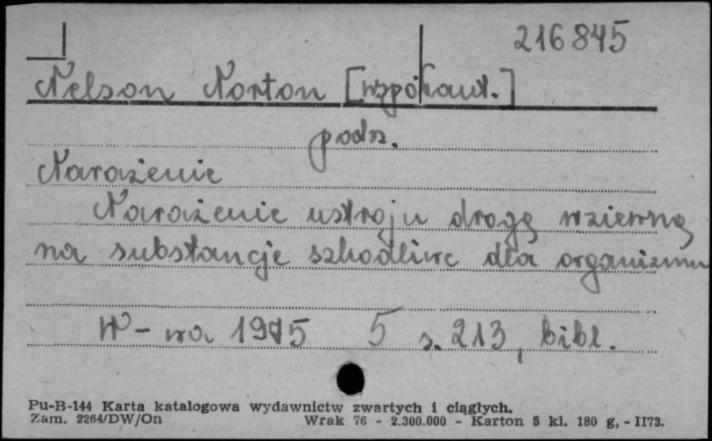 216845
Nelson Norton [współaut.]
podz.
Narażenie
Narażenie ustroju drogą wziewną
na substancje szkodliwe dla organizmu
W-wa 1975 5 s. 213, bibl.
Pu-B-144 Karta katalogowa wydawnictw zwartych i ciągłych.
Zam. 2264/DW/On Wrak 76 - 2.300.000 - Karton 5 kl. 180 g, - II73.